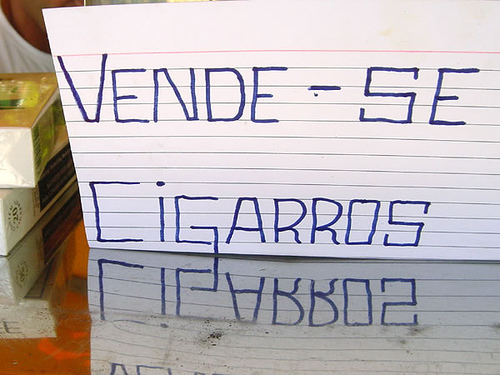 VENDE-SE
CiGARROS